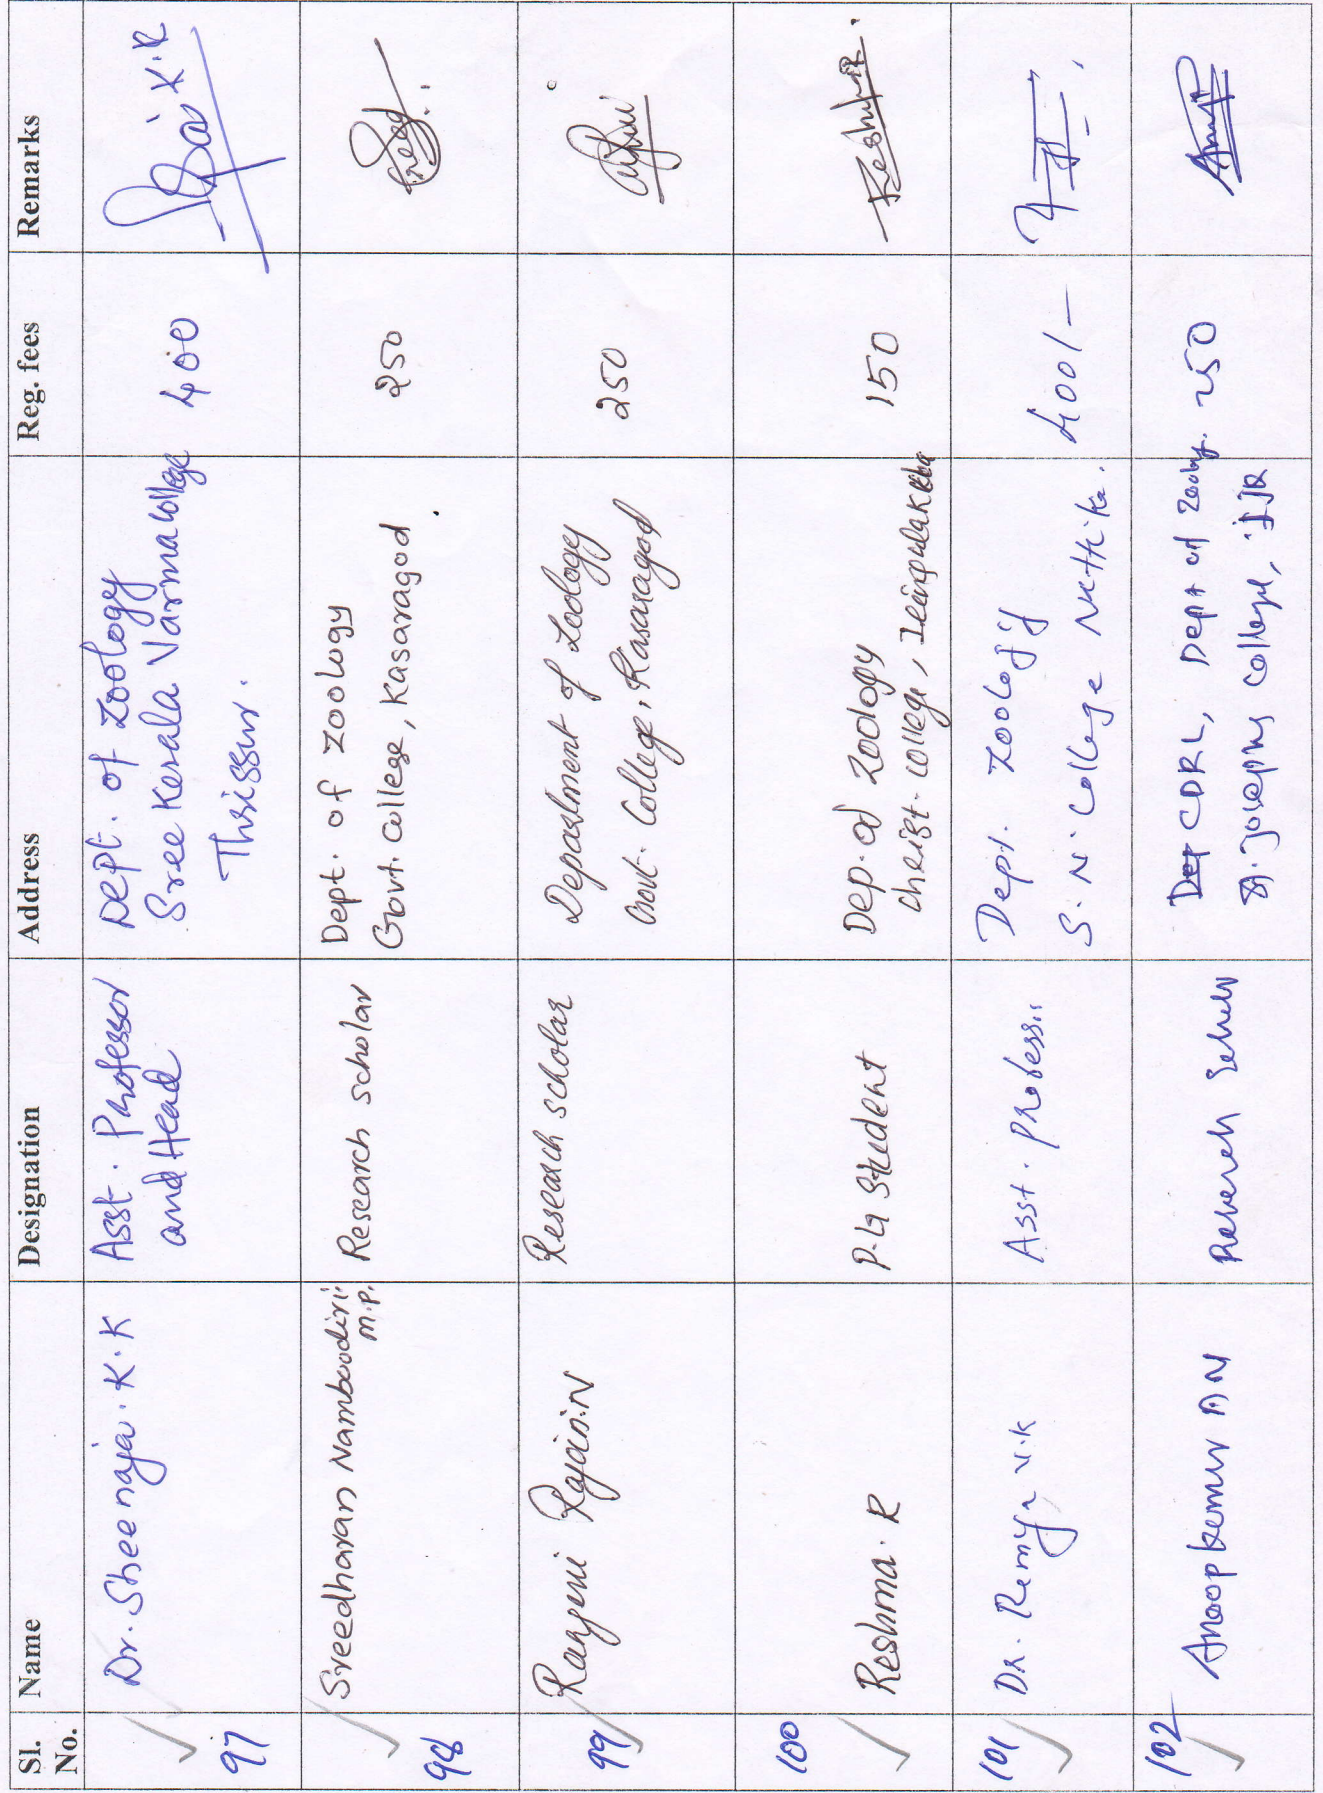 Sl. No. Name Designation Address Reg. fees Remarks
97 Dr. Sheenaja. K. K Asst. Professor Dept. of Zoology 400
and Head Sree Kerala Varma College
Thrissur.
98 Sreedharan Namboodiri. Research Scholar Dept. of Zoology 250
M.P. Govt. College, Kasaragod
99 Ranjini Rajan.N Research Scholar Department of Zoology 250
Govt. College, Kasaragod
100 Reshma. R P.G Student Dep. of Zoology 150 Reshma.R
Christ. College, Irinjalakuda
101 Dr. Remya V.K Asst. Professor Dept. Zoology 400/-
S. N. College Nattika.
102 Anoopkumar AN CDRL, Dept of Zoology. 250
St. Josephs College, IJK